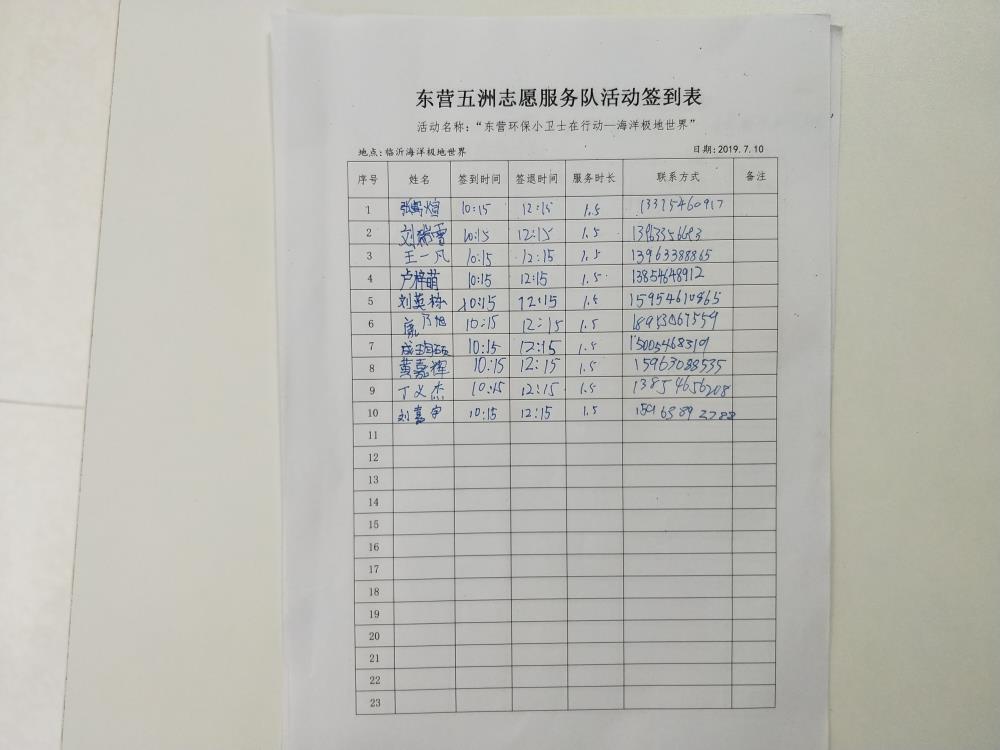 东营五洲志愿服务队活动签到表
活动名称：“东营环保小卫士在行动—海洋极地世界”
地点:临沂海洋极地世界 日期:2019.7.10
序号 姓名 签到时间 签退时间 服务时长 联系方式 备注
1 10:15 12:15 1.5 13375460917
2 刘瑞雪 10:15 12:15 1.5
3 王一凡 10:15 12:15 1.5 13963388865
4 卢梓萌 10:15 12:15 1.5 13854648912
5 刘英栋 10:15 12:15 1.5 15954610865
6 10:15 12:15 1.5
7 10:15 12:15 1.5 15005468319
8 黄嘉辉 10:15 12:15 1.5 15963088535
9 丁义杰 10:15 12:15 1.5 13854656208
10 10:15 12:15 1.5
11
12
13
14
15
16
17
18
19
20
21
22
23